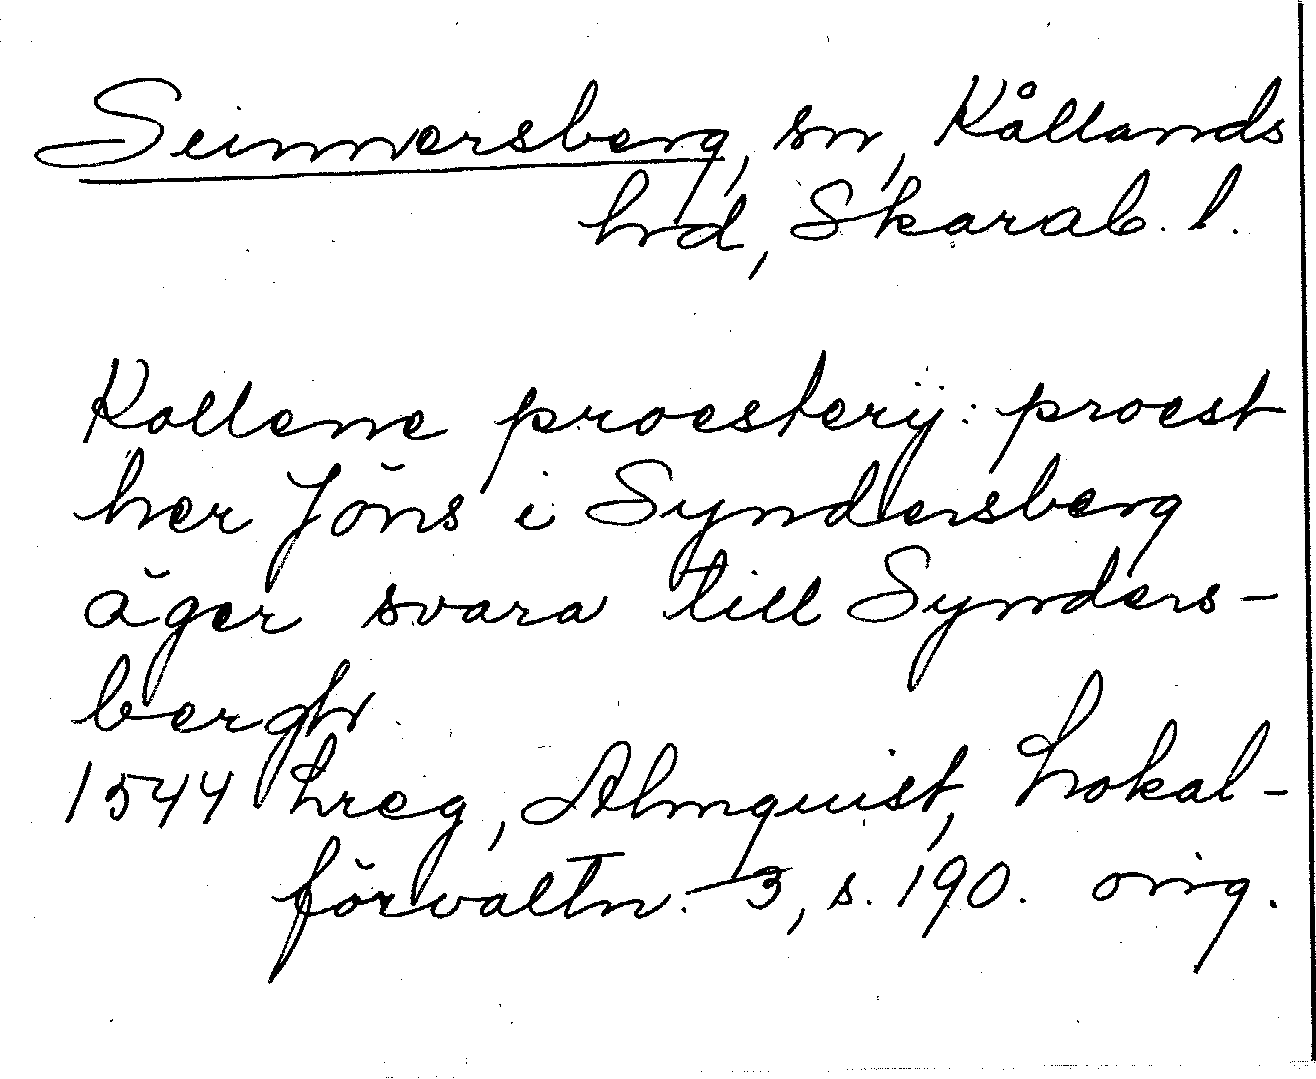 Sunnersberg, sn, Kållands
hrd, Skarab. l.
Kollene proesterij: proest
her Jöns i Syndersberg
äger svara till Synders-
bergh
1544 hreg, Almquist, Lokal-
förvaltn. 3, s. 190. orig.